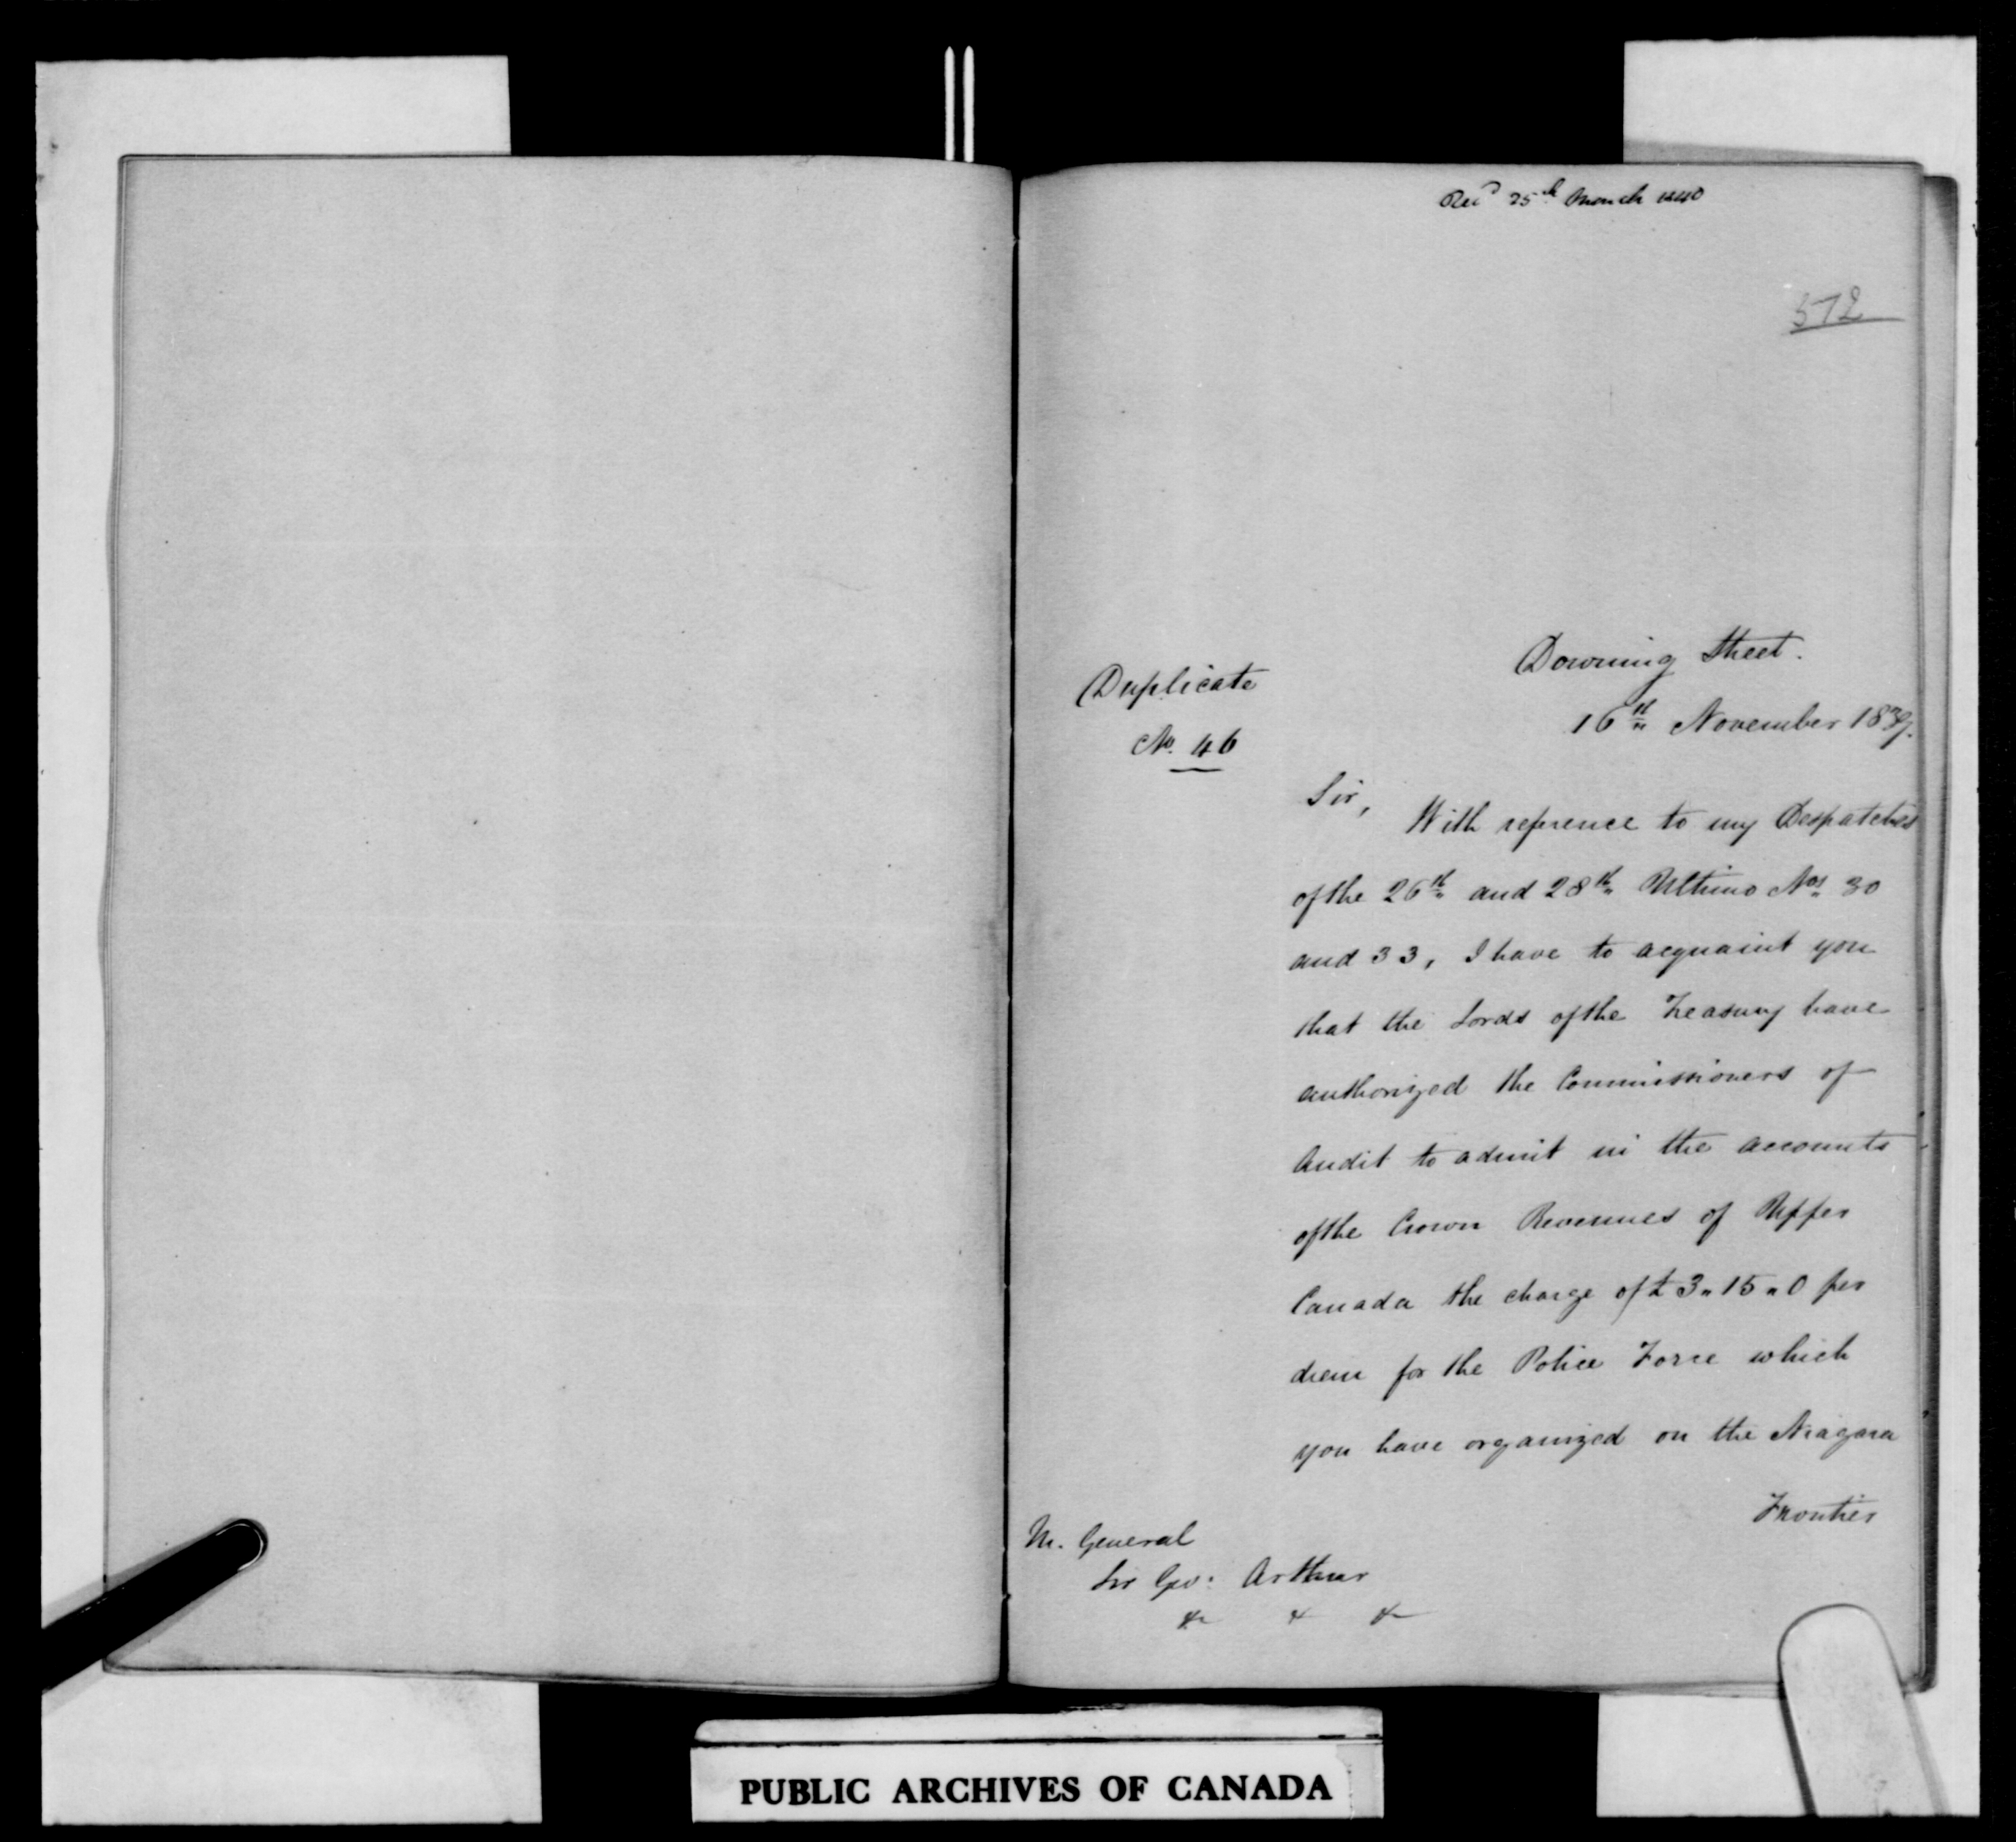 Recd 25th March 1840
572
Downing Street.
Duplicate
16th November 1839.
No. 46
Sir,
With reference to my Despatches
of the 26th and 28th Ultimo Nos 30
and 33, I have to acquaint you
that the Lords of the Treasury have
authorized the Commissioners of
Audit to admit in the accounts
of the Crown Revenues of Upper
Canada the charge of £3"15"0 per
diem for the Police Force which
you have organized on the Niagara
Frontier
M. General
Sir Geo: Arthur
&c & &c
PUBLIC ARCHIVES OF CANADA